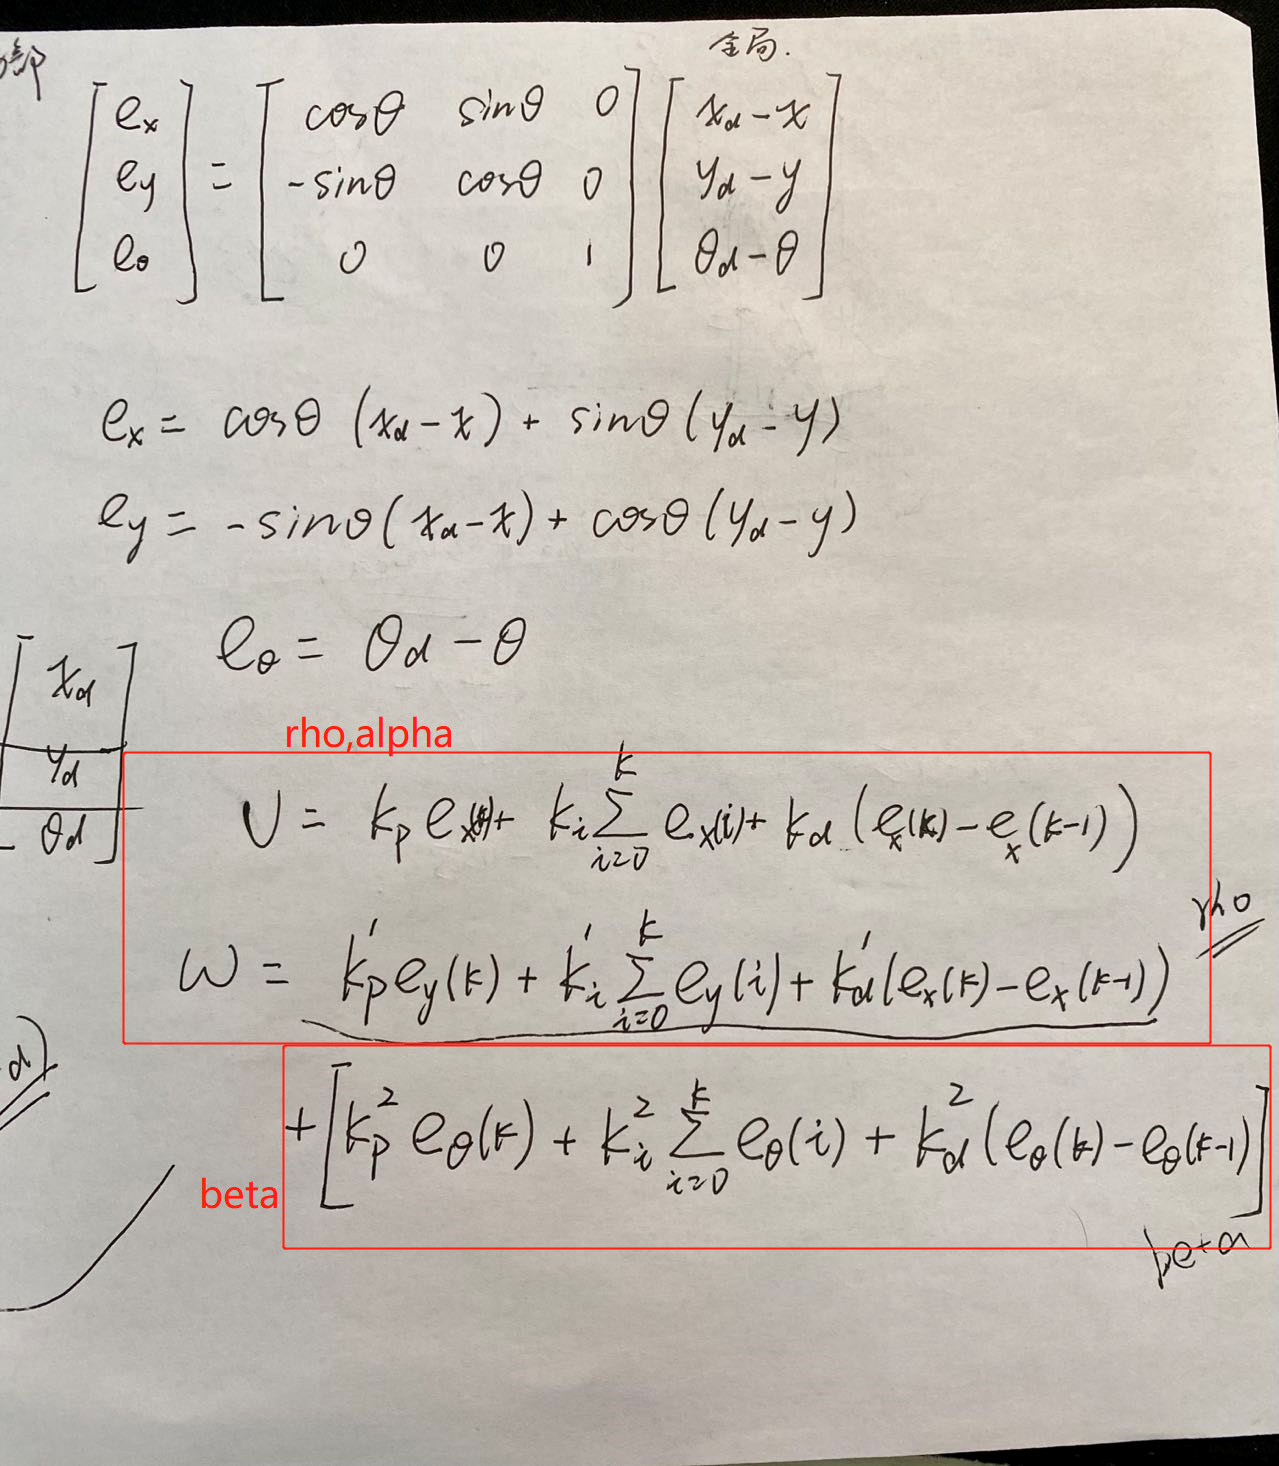 部
全局.
[ e_x ; e_y ; e_θ ] = [ cosθ sinθ 0 ; -sinθ cosθ 0 ; 0 0 1 ] [ x_d - x ; y_d - y ; θ_d - θ ]
e_x = cosθ (x_d - x) + sinθ (y_d - y)
e_y = -sinθ (x_d - x) + cosθ (y_d - y)
e_θ = θ_d - θ
[ x_d ; y_d ; θ_d ]
rho,alpha
v = k_p e_x(k) + k_i Σ_{i=0}^{k} e_x(i) + k_d (e_x(k) - e_x(k-1))
rho
ω = k_p' e_y(k) + k_i' Σ_{i=0}^{k} e_y(i) + k_d' (e_x(k) - e_x(k-1))
d)
+ [ k_p^2 e_θ(k) + k_i^2 Σ_{i=0}^{k} e_θ(i) + k_d^2 (e_θ(k) - e_θ(k-1) ]
beta
beta